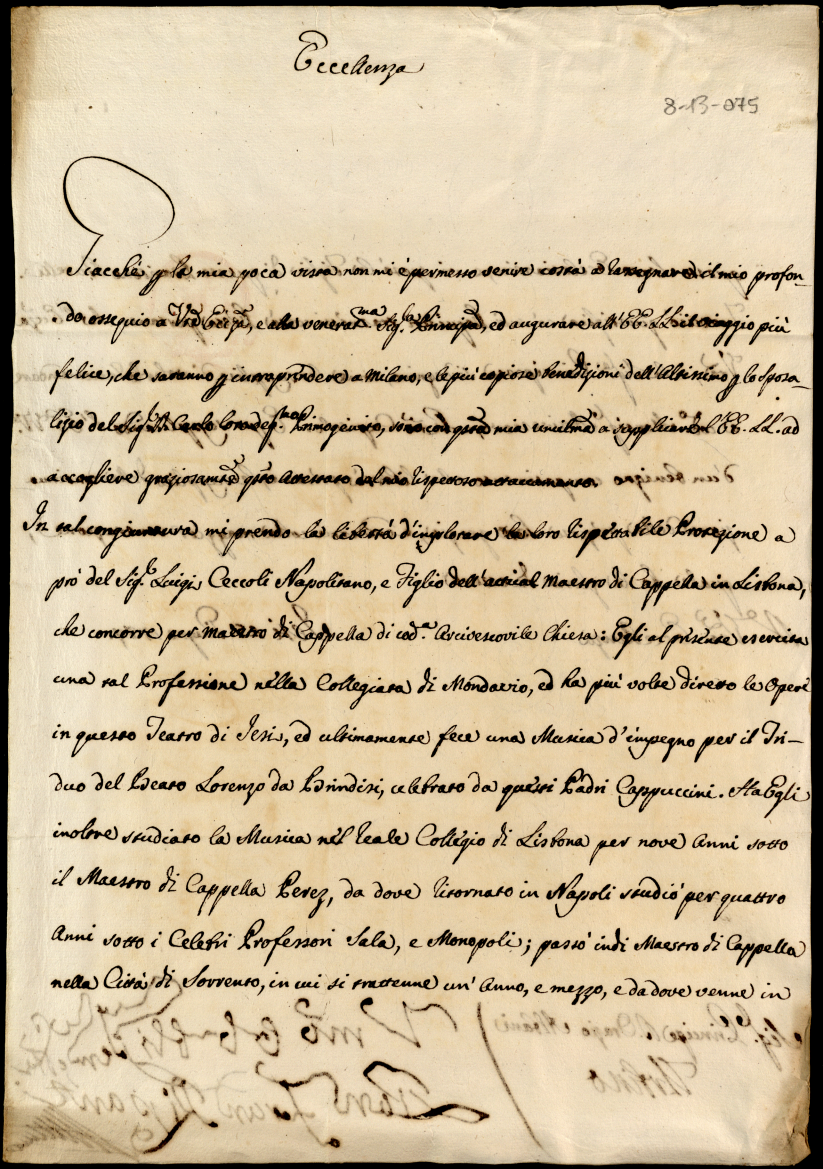 Eccellenza
8-13-075
Giacchè p la mia poca vista non mi è permesso venire costà a rassegnare il mio profon-
do ossequio a Vrã Eccza, e alla veneratma Sigra Principã, ed augurare all'EE. LL. il viaggio più
felice, che saranno p intraprindere a Milano, e le più copiose benedizioni dell'Altissimo p lo sposa-
lizio del Sigr D. Carlo loro degmo Primogenito, sono con qsta mia umilma a supplicare l'EE. LL. ad
accogliere graziosamte qsto attestato del mio rispettoso attaccamento.
In tal congiuntura mi prendo la libertà d'implorare la loro rispettabile Protezione a
prò del Sigr Luigi Ceccoli Napolitano, e Figlio dell'actual Maestro di Cappella in Lisbona,
che concorre per maestro di Cappella di coda Arcivescovile Chiesa: Egli al presente esercita
una tal Professione nella Collegiata di Mondavio, ed ha più volte diretto le Opere
in questo Teatro di Jesi, ed ultimamente fece una Musica d'impegno per il Tri-
duo del Beato Lorenzo da Brindisi, celebrato da questi Padri Cappuccini. Ha Egli
inoltre studiato la Musica nel reale Collegio di Lisbona per nove Anni sotto
il Maestro di Cappella Perez, da dove ritornato in Napoli studiò per quattro
Anni sotto i Celebri Professori Sala, e Monopoli; passò indi Maestro di Cappella
nella Città di Sorrento, in cui si trattenne un'Anno, e mezzo, e da dove venne in